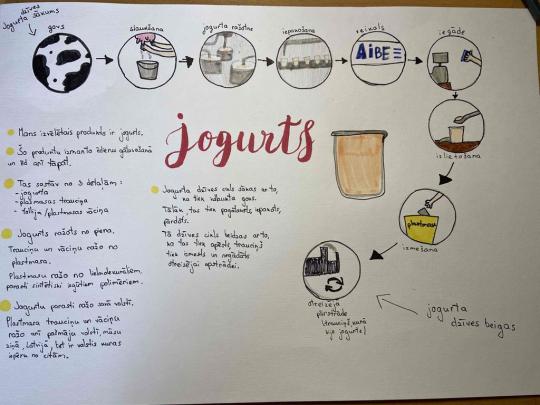 dzīves
jogurta sākums
govs
slaukšana
jogurta ražotne
iepakošana
veikals
iegāde
AiBE
izlietošana
plastmasa
izmešana
otreizēja
pārstrāde
jogurta
dzīves beigas
jogurts
Mans izvēlētais produkts ir jogurts.
Šo produktu izmanto ēdienu gatavošanā
un ēd arī tāpat.
Tas sastāv no 3 detaļām:
- jogurta
- plasmasas trauciņa
- folija/plastmasas vāciņa
Jogurts ražots no piena.
Trauciņu un vāciņu ražo no
plastmasa.
Plastmasu ražo no
parasti sintētiski
Jogurtu parasti ražo savā valstī.
Plastmasa trauciņu un vāciņu
ražo arī valstī, mūsu
ziņā, Latvijā, bet ir valstis kuras
no citām.
Jogurta dzīves cikls sākas ar to,
no tiek slaukta govs.
Tālāk tas tiek pagatavots, iepakots,
pārdots.
Tā dzīves cikls beidzas ar to,
ka tas tiek apēsts, trauciņš
tiek izmests un nogādāts
otreizējai apstrādei.